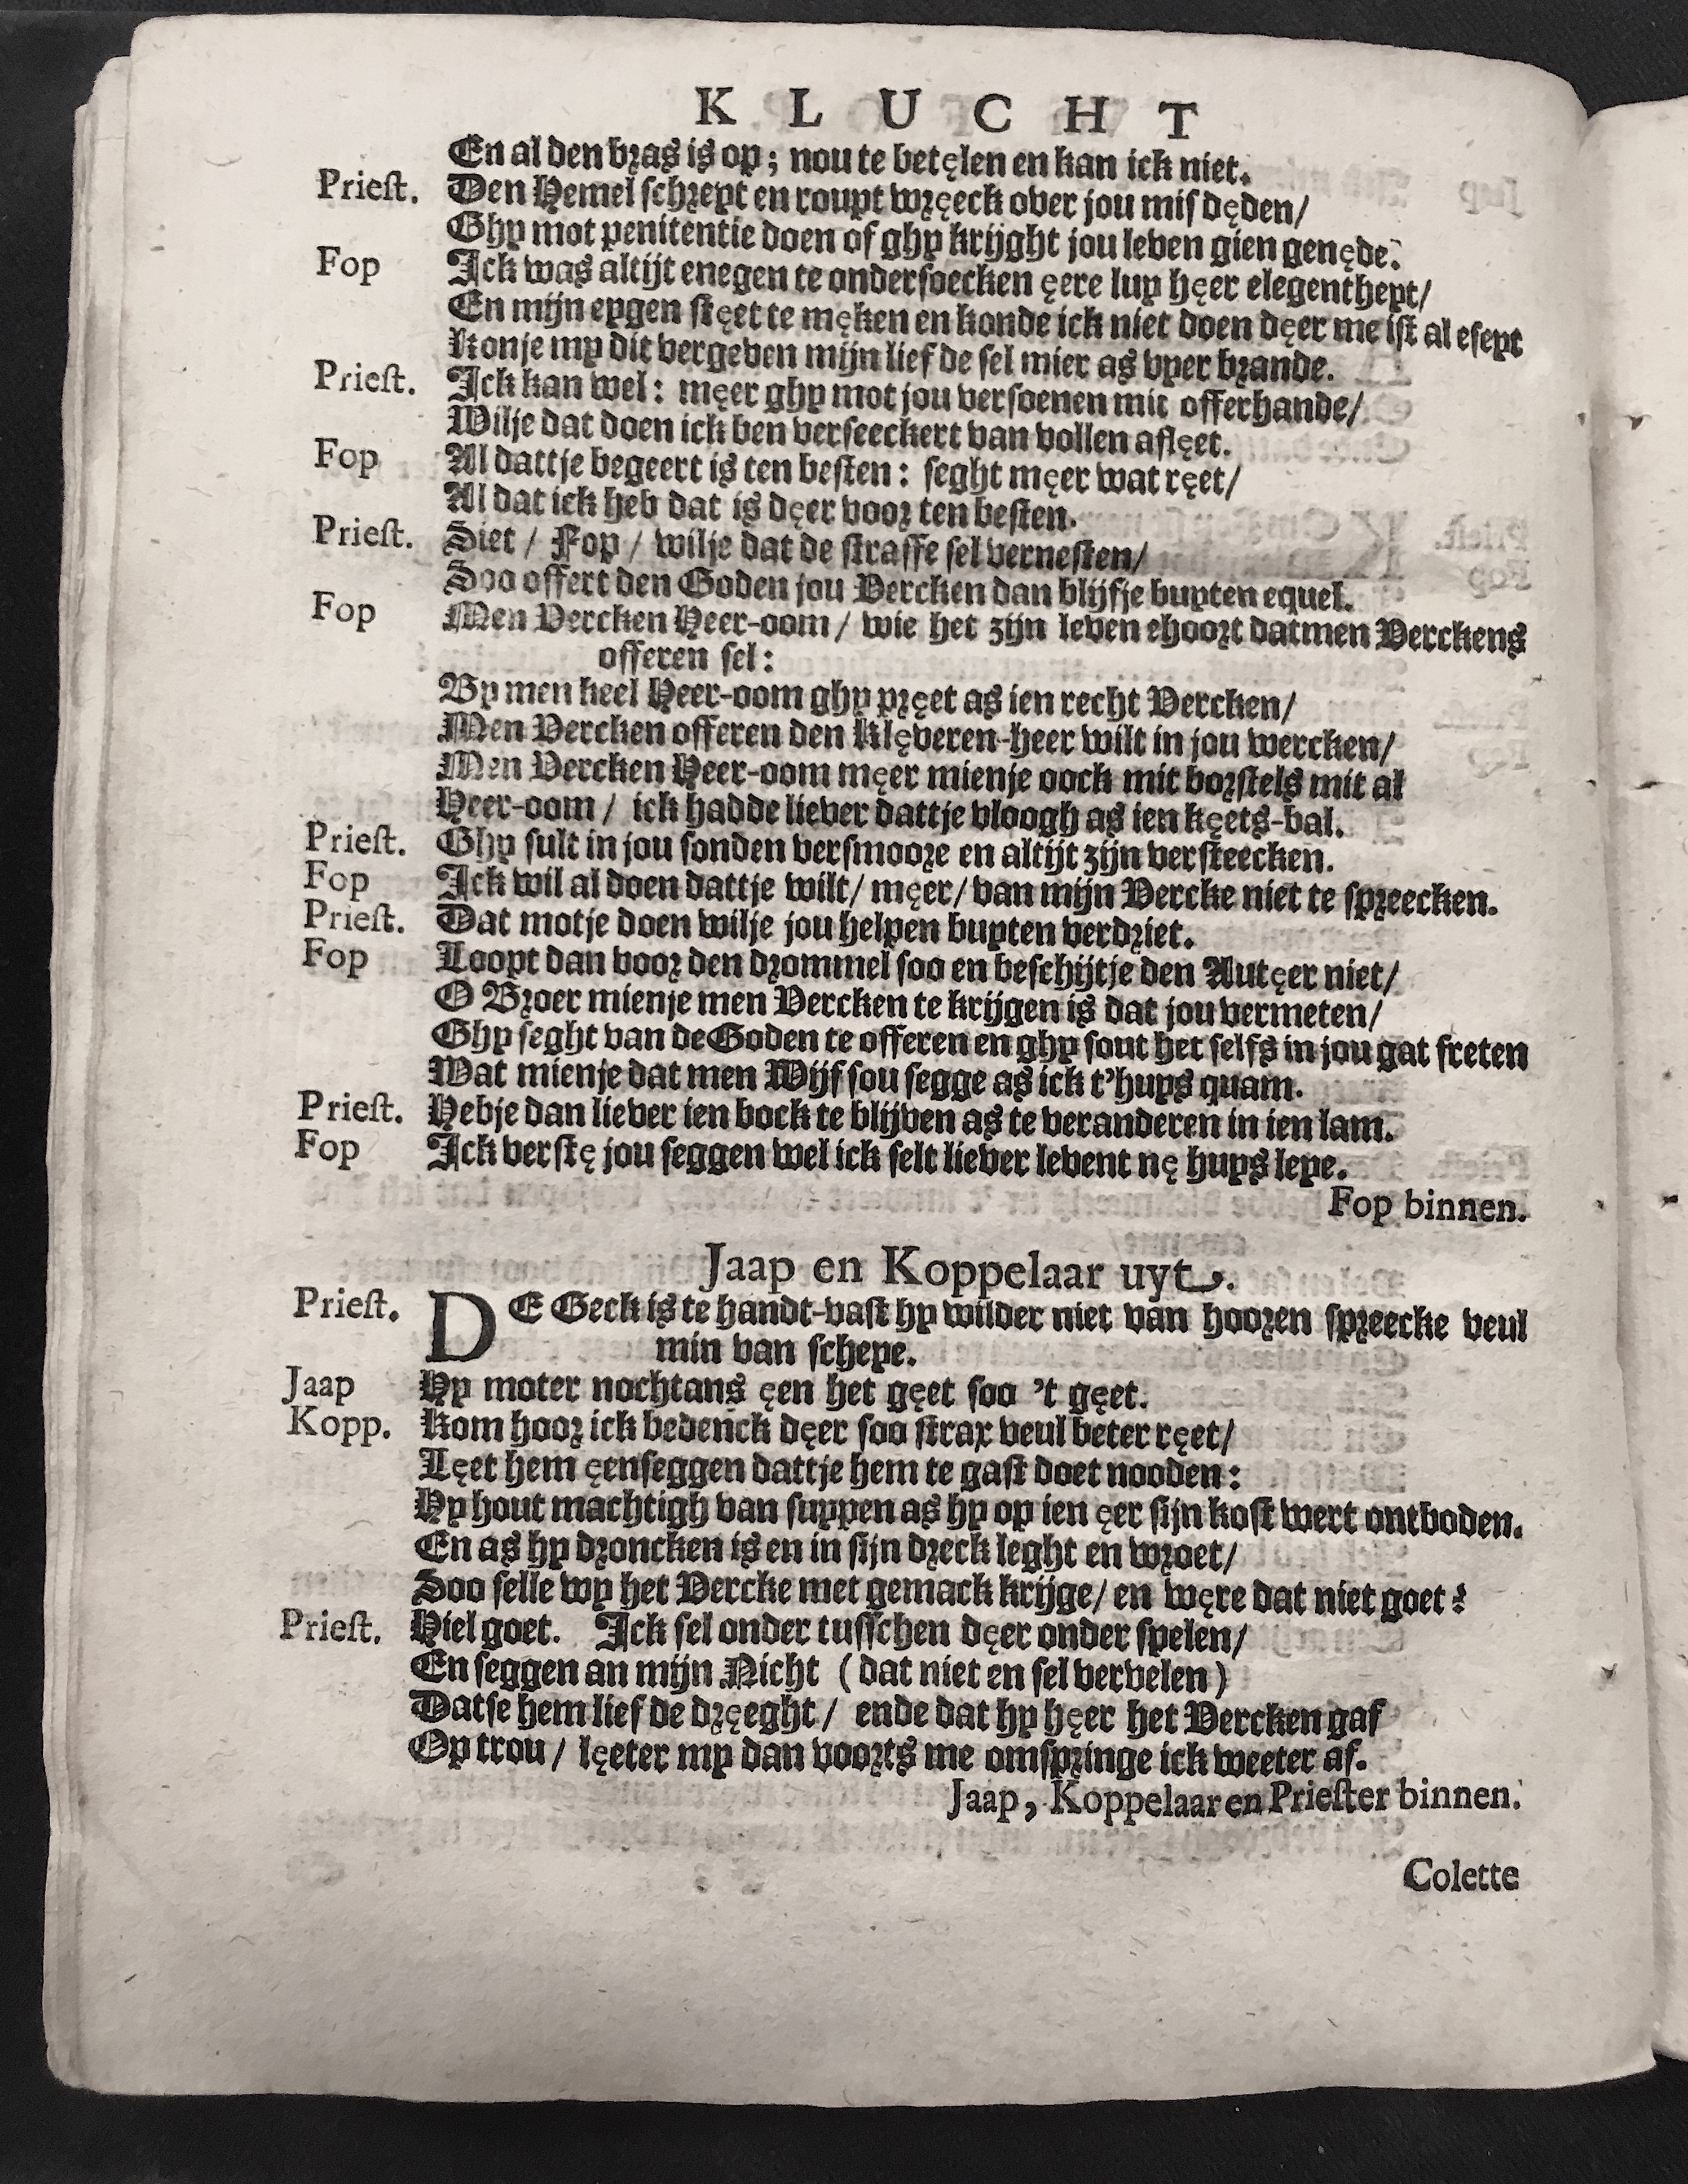 KLUCHT
En al den bras is op; nou te betęlen en kan ick niet.
Priest. Den Hemel schreyt en rouyt wręeck over jou mis dęden/
Ghy mot penitentie doen of ghy krijght jou leven gien genęde.
Fop Ick was altijt enegen te ondersoecken ęere luy hęer elegentheyt/
En mijn eygen stęet te męken en konde ick niet doen dęer me ist al eseyt
Konje my dit vergeven mijn lief de sel mier as vyer brande.
Priest. Ick kan wel: męer ghy mot jou versoenen mit offerhande/
Wilje dat doen ick ben verseeckert van vollen aflęet.
Fop Al dattje begeert is ten besten: seght męer wat ręet/
Al dat ick heb dat is dęer voor ten besten.
Priest. Siet / Fop / wilje dat de straffe sel vernesten/
Soo offert den Goden jou Vercken dan blijfje buyten equel.
Fop Men Vercken Heer-oom / wie het zijn leven ehoort datmen Verckens
offeren sel:
By men keel Heer-oom ghy pręet as ien recht Vercken/
Men Vercken offeren den Klęveren-heer wilt in jou wercken/
Men Vercken Heer-oom męer mienje oock mit borstels mit al
Heer-oom / ick hadde liever dattje vloogh as ien kęets-bal.
Priest. Ghy sult in jou sonden versmoore en altijt zijn versteecken.
Fop Ick wil al doen dattje wilt/ męer/ van mijn Vercke niet te spreecken.
Priest. Dat motje doen wilje jou helpen buyten verdriet.
Fop Loopt dan voor den drommel soo en beschijtje den Autęer niet/
O Broer mienje men Vercken te krijgen is dat jou vermeten/
Ghy seght van de Goden te offeren en ghy sout het selfs in jou gat freten
Wat mienje dat men Wijf sou segge as ick t'huys quam.
Priest. Hebje dan liever ien bock te blijven as te veranderen in ien lam.
Fop Ick verstę jou seggen wel ick selt liever levent nę huys leye.
Fop binnen.
Jaap en Koppelaar uyt.
Priest. DE Geck is te handt-vast hy wilder niet van hooren spreecke veul
min van scheye.
Jaap Hy moter nochtans ęen het gęet soo 't gęet.
Kopp. Kom hoor ick bedenck dęer soo strax veul beter ręet/
Lęet hem ęenseggen dattje hem te gast doet nooden:
Hy hout machtigh van suypen as hy op ien ęer sijn kost wert ontboden.
En as hy droncken is en in sijn dreck leght en wroet/
Soo selle wy het Vercke met gemack krijge/ en węre dat niet goet?
Priest. Hiel goet. Ick sel onder tusschen dęer onder spelen/
En seggen an mijn Nicht (dat niet en sel vervelen)
Datse hem lief de dręeght / ende dat hy hęer het Vercken gaf
Op trou / lęeter my dan voorts me omspringe ick weeter af.
Jaap, Koppelaar en Priester binnen.
Colette